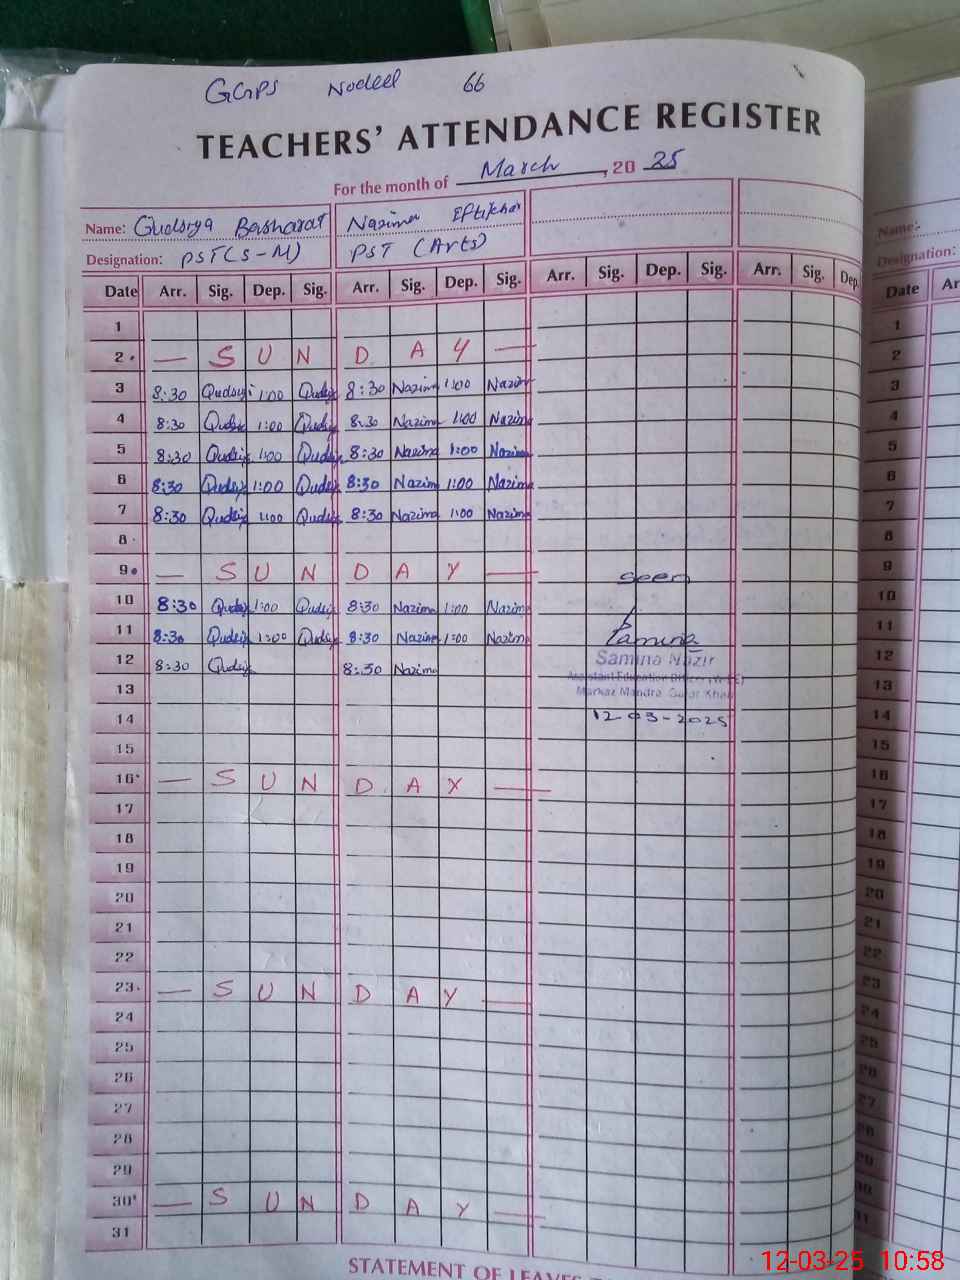 GGPS Nodeel 66
TEACHERS' ATTENDANCE REGISTER
For the month of March, 20 25
Name: Qudsiya Basharat Nazima Eftikhar
Designation: PST(S-M) PST (Arts)
Date Arr. Sig. Dep. Sig. Arr. Sig. Dep. Sig. Arr. Sig. Dep. Sig. Arr. Sig. Dep.
1
2 — S U N D A Y —
3 8:30 Qudsiy 1:00 Qudsiy 8:30 Nazima 1:00 Nazim
4 8:30 Qudsiy 1:00 Qudsiy 8:30 Nazima 1:00 Nazim
5 8:30 Qudsiy 1:00 Qudsiy 8:30 Nazima 1:00 Nazim
6 8:30 Qudsiy 1:00 Qudsiy 8:30 Nazim 1:00 Nazim
7 8:30 Qudsiy 1:00 Qudsiy 8:30 Nazima 1:00 Nazim
8
9 — S U N D A Y —
10 8:30 Qudsiy 1:00 Qudsiy 8:30 Nazima 1:00 Nazim
11 8:30 Qudsiy 1:00 Qudsiy 8:30 Nazim 1:00 Nazim
12 8:30 Qudsiy 8:30 Nazima
13
14
15
16 — S U N D A Y —
17
18
19
20
21
22
23 — S U N D A Y —
24
25
26
27
28
29
30 — S U N D A Y —
31
seen
Samina
Samina Nazir
Assistant Education Officer
Markaz Mandra Gujar Khan
12-03-2025
STATEMENT OF LEAVES
Name:
Designation:
Date Ar
1
2
3
4
5
6
7
8
9
10
11
12
13
14
15
16
17
18
19
20
21
22
23
24
25
26
27
28
29
30
12-03-25 10:58